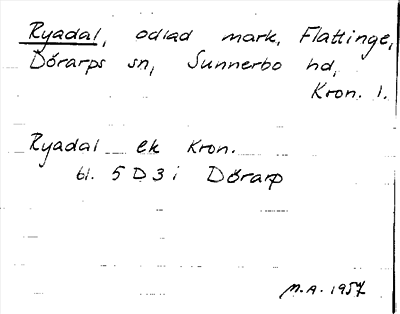 Ryadal, odlad mark, Flattinge,
Dörarps sn, Sunnerbo hd,
Kron. 1.
Ryadal ek Kron.
bl. 5 D 3 i Dörarp
M.A. 1957